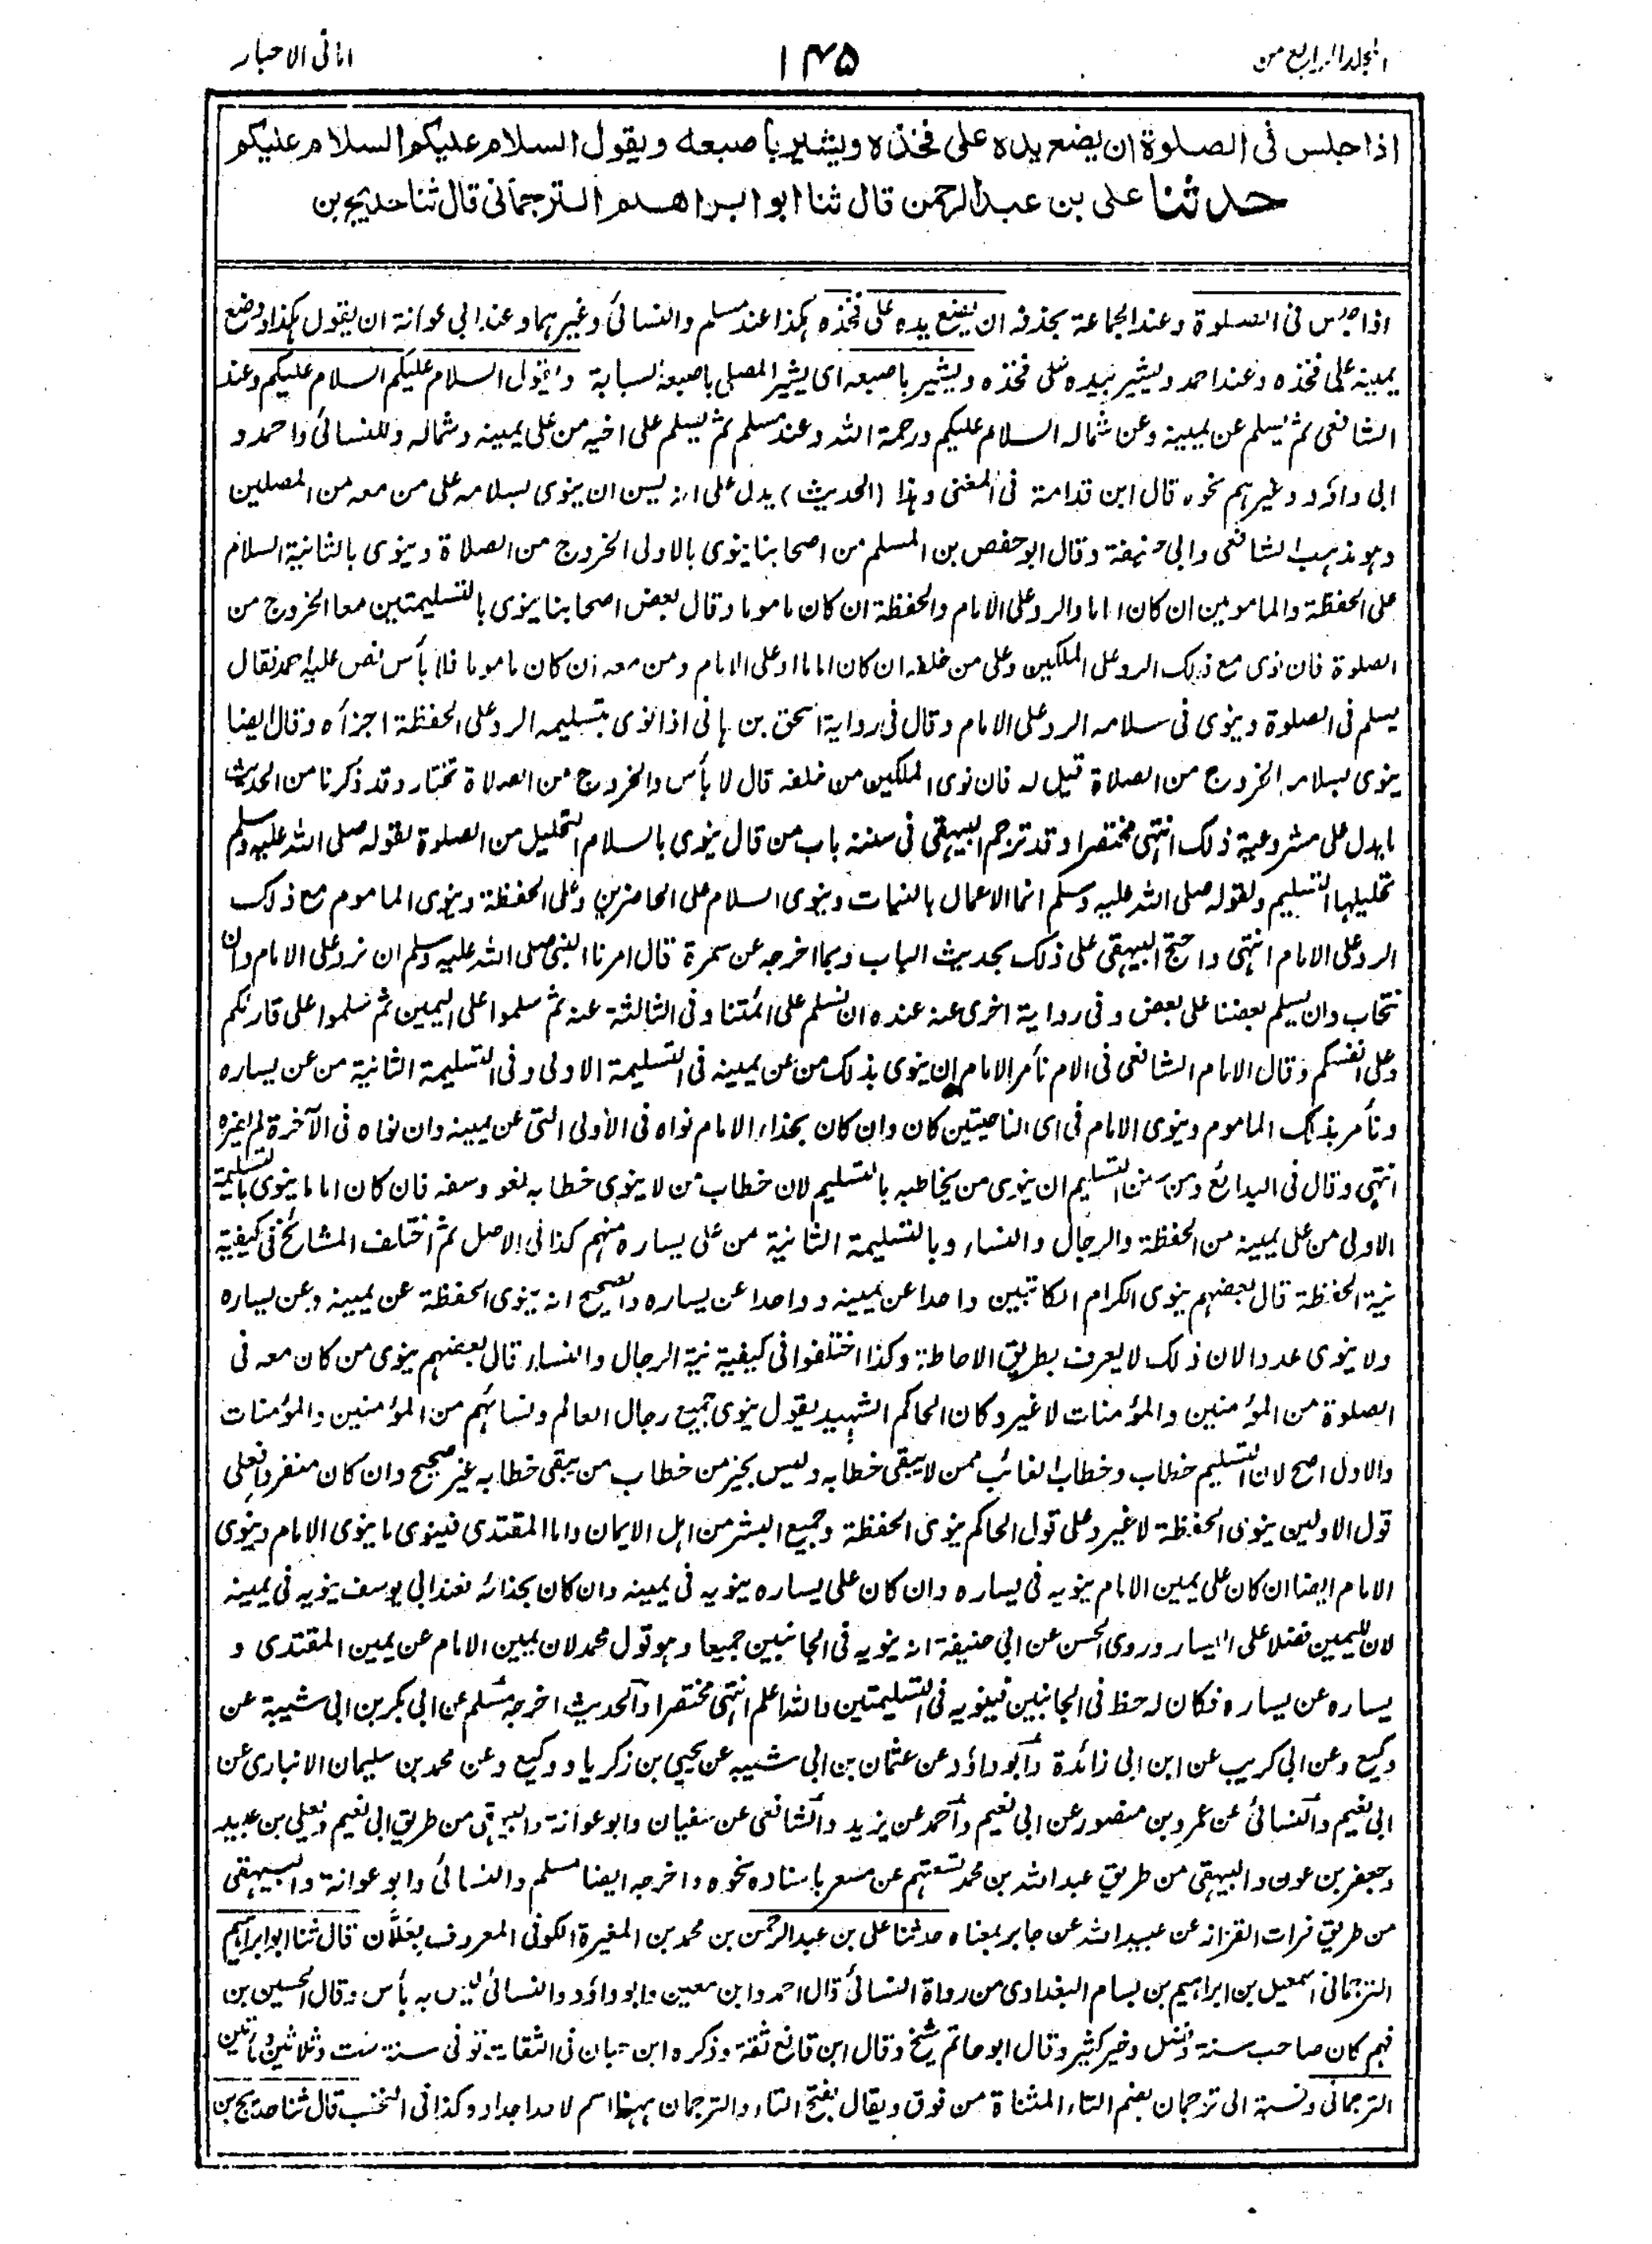 المجلد الرابع من
١٣٥
امانی الاحبار
اذا جلس فی الصلوة ان یضع یده علی فخذه ویشیر باصبعه ویقول السلام علیکم السلام علیکم
حدثنا علی بن عبدالرحمن قال ثنا ابو ابراهیم الترجمانی قال ثنا حدیج بن
اذا جلس فی الصلوة وعند الجماعة بحذفه ان یضع یده علی فخذه هكذا عند مسلم والنسائی وغیرهما وعند ابی عوانة ان یقول هكذا ووضع
یمینه علی فخذه وعند احمد ویشیر بیده علی فخذه ویشیر باصبعه ای یشیر المصلی باصبعه السبابة ویقول السلام علیکم السلام علیکم وعند
الشافعی ثم یسلم عن یمینه وعن شماله السلام علیکم ورحمة الله وعند مسلم ثم یسلم علی اخیه من علی یمینه وشماله وللنسائی واحمد و
ابی داؤد وغیرهم نحوه قال ابن قدامة فی المغنی وهذا (الحدیث) یدل علی انه یسن ان ینوی بسلامه علی من معه من المصلین
وهو مذهب الشافعی وابی حنیفة وقال ابو حفص بن المسلم من اصحابنا ینوی بالاولی الخروج من الصلاة وینوی بالثانیة السلام
علی الحفظة والمامومین ان کان اماما والرد علی الامام والحفظة ان کان ماموما وقال بعض اصحابنا ینوی بالتسلیمتین معا الخروج من
الصلوة فان نوی مع ذلک الرد علی الملکین وعلی من خلفه ان کان اماما او علی الامام ومن معه ان کان ماموما فلا بأس نص علیه احمد فقال
یسلم فی الصلوة وینوی فی سلامه الرد علی الامام وقال فی روایة اسحق بن هانی اذا نوی بتسلیمه الرد علی الحفظة اجزأه وقال ایضا
ینوی بسلامه الخروج من الصلاة قیل له فان نوی الملکین من خلفه قال لا بأس والخروج من الصلاة نختار وقد ذکرنا من الحدیث
ما یدل علی مشروعیة ذلک انتهی مختصرا وقد ترجم البیهقی فی سننه باب من قال ینوی بالسلام التحلیل من الصلوة لقوله صلی الله علیه وسلم
تحلیلها التسلیم ولقوله صلی الله علیه وسلم انما الاعمال بالنیات وینوی السلام علی الحاضرین وعلی الحفظة وینوی الماموم مع ذلک
الرد علی الامام انتهی واحتج البیهقی علی ذلک بحدیث الباب وبما اخرجه عن سمرة قال امرنا النبی صلی الله علیه وسلم ان نرد علی الامام وان
نتحاب وان یسلم بعضنا علی بعض وفی روایة اخری عنه عنده ان نسلم علی ائمتنا وفی الثالثة عنه ثم سلموا علی الیمین ثم سلموا علی قارئکم
وعلی انفسکم وقال الامام الشافعی فی الام نأمر الامام ان ینوی بذلک من عن یمینه فی التسلیمة الاولی وفی التسلیمة الثانیة من عن یساره
ونأمر بذلک الماموم وینوی الامام فی ای الناحیتین کان وان کان بحذاء الامام نواه فی الاولی التی عن یمینه وان نواه فی الآخرة لم یضره
انتهی وقال فی البدائع ومن سنن التسلیم ان ینوی من یخاطبه بالتسلیم لان خطاب من لا ینوی خطابه لغو وسفه فان کان اماما ینوی بالتسلیمة
الاولی من علی یمینه من الحفظة والرجال والنساء وبالتسلیمة الثانیة من علی یساره منهم کذا فی الاصل ثم اختلف المشائخ فی کیفیة
نیة الحفظة قال بعضهم ینوی الکرام الکاتبین واحدا عن یمینه وواحدا عن یساره والصحیح انه ینوی الحفظة عن یمینه وعن یساره
ولا ینوی عددا لان ذلک لا یعرف بطریق الاحاطة وکذا اختلفوا فی کیفیة نیة الرجال والنساء قال بعضهم ینوی من کان معه فی
الصلوة من المؤمنین والمؤمنات لا غیر وکان الحاکم الشهید یقول ینوی جمیع رجال العالم ونسائهم من المؤمنین والمؤمنات
والاول اصح لان التسلیم خطاب وخطاب الغائب ممن لا یبقی خطابه ولیس بخیر من خطاب من یبقی خطابه غیر صحیح وان کان منفردا فعلی
قول الاولین ینوی الحفظة لا غیر وعلی قول الحاکم ینوی الحفظة وجمیع البشر من اهل الایمان واما المقتدی فینوی ما ینوی الامام وینوی
الامام ایضا ان کان علی یمین الامام ینویه فی یساره وان کان علی یساره ینویه فی یمینه وان کان بحذائه فعند ابی یوسف ینویه فی یمینه
لان للیمین فضلا علی الیسار وروی الحسن عن ابی حنیفة انه ینویه فی الجانبین جمیعا وهو قول محمد لان یمین الامام عن یمین المقتدی و
یساره عن یساره فکان له حظ فی الجانبین فینویه فی التسلیمتین والله اعلم انتهی مختصرا والحدیث اخرجه مسلم عن ابی بکر بن ابی شیبة عن
وکیع وعن ابی کریب عن ابن ابی زائدة وابو داؤد عن عثمان بن ابی شیبه عن یحیی بن زکریا ووکیع وعن محمد بن سلیمان الانباری عن
ابی نعیم والنسائی عن عمرو بن منصور عن ابی نعیم واحمد عن یزید والشافعی عن سفیان وابو عوانة والبیهقی من طریق ابی نعیم ویعلی بن عبید
وجعفر بن عون والبیهقی من طریق عبد الله بن محمد تسعتهم عن مسعر باسناده نحوه واخرجه ایضا مسلم والنسائی وابو عوانة والبیهقی
من طریق فرات القزاز عن عبید الله عن جابر بمعناه حدثنا علی بن عبد الرحمن بن محمد بن المغیرة الکوفی المعروف بعلان قال ثنا ابو ابراهیم
الترجمانی اسمعیل بن ابراهیم بن بسام البغدادی من رواة النسائی قال احمد وابن معین وابو داؤد والنسائی لیس به بأس وقال الحسین بن
فهم کان صاحب سنة وفضل وخیر کثیر وقال ابو حاتم شیخ وقال ابن قانع ثقة وذکره ابن حبان فی الثقات توفی سنة ست وثلاثین ومأتین
الترجمانی ونسبته الی ترجمان بضم التاء المثناة من فوق ویقال بفتح التاء والترجمان بهذا اسم لاحد اجداده کذا فی النخب قال ثنا حدیج بن